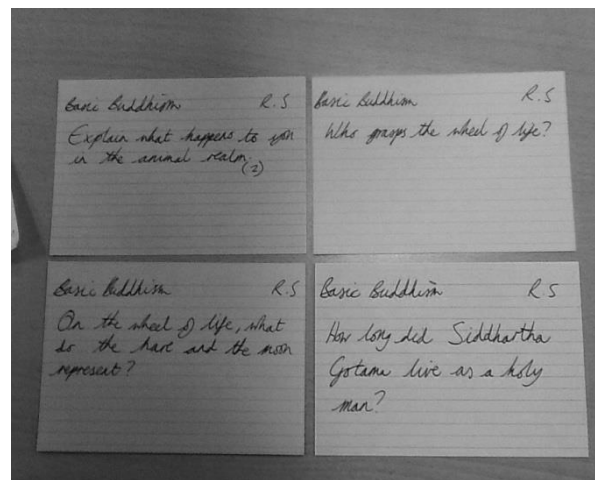 Basic Buddhism R.S
Explain what happens to you
in the animal realm.
(2)
Basic Buddhism R.S
Who grasps the wheel of life?
Basic Buddhism R.S
On the wheel of life, what
do the hare and the moon
represent?
Basic Buddhism R.S
How long did Siddhartha
Gotama live as a holy
man?